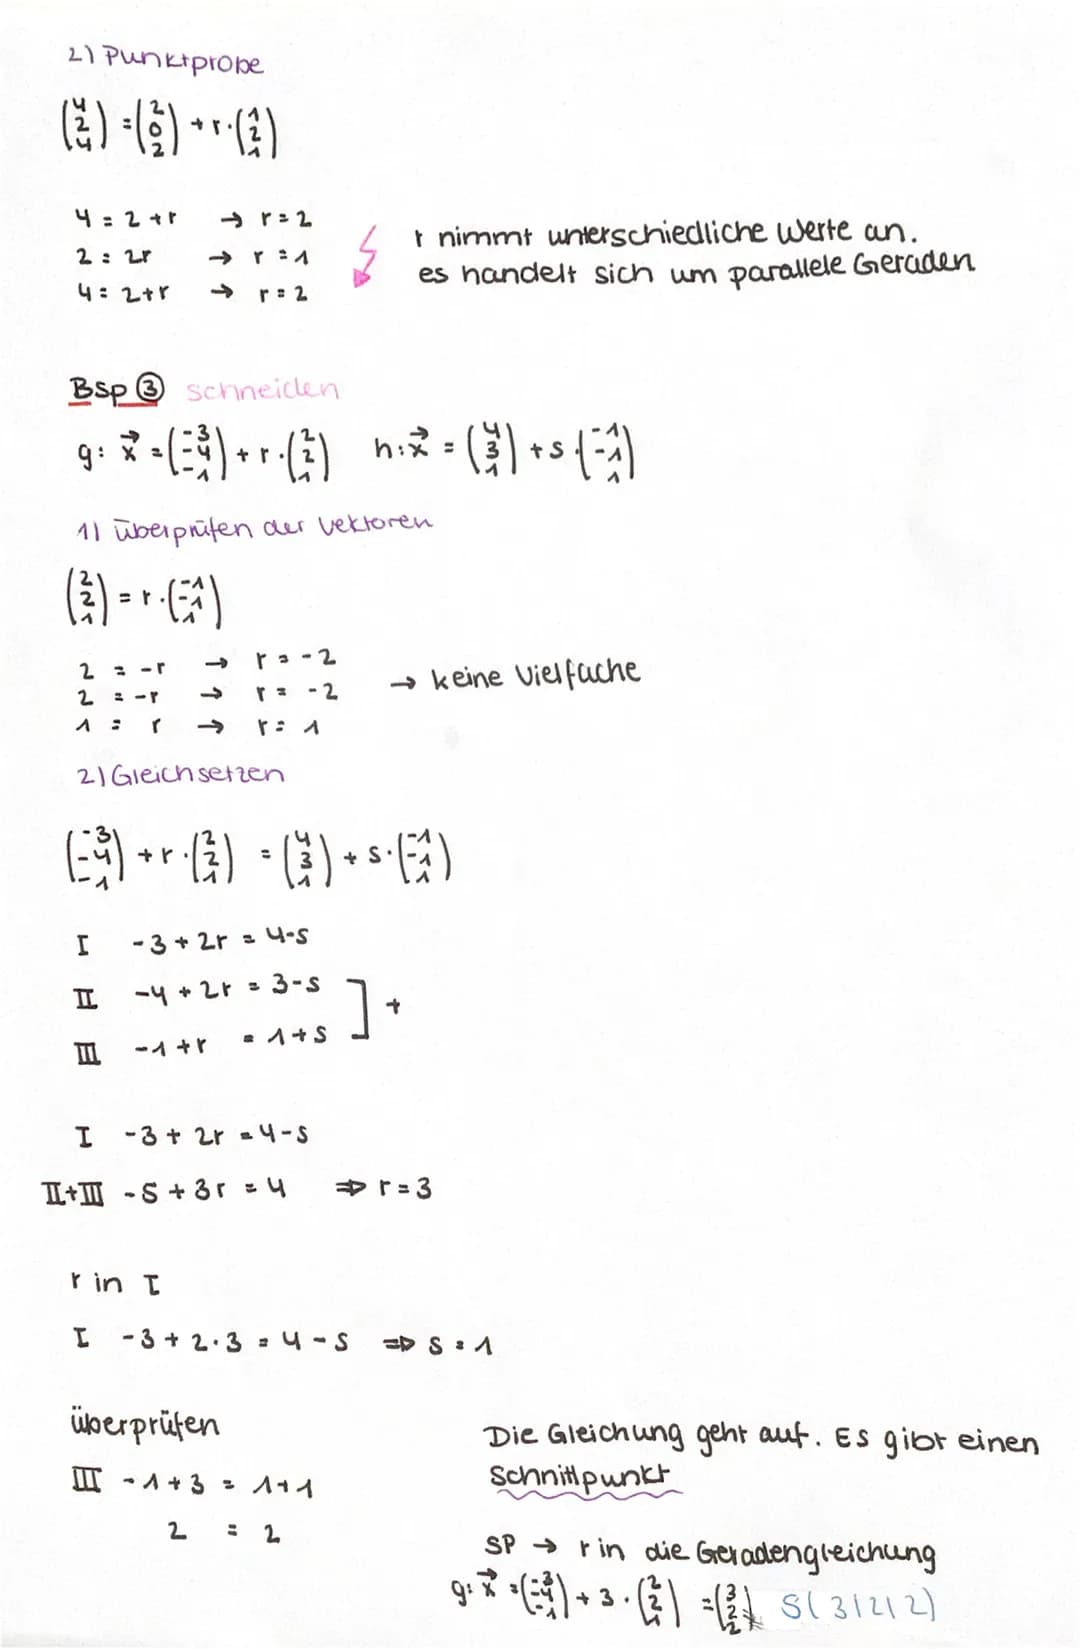 2) Punktprobe
(4 2 4) = (2 0 2) + r · (1 2 1)
4 = 2 + r → r = 2
2 = 2r → r = 1
4 = 2 + r → r = 2
r nimmt unterschiedliche Werte an.
es handelt sich um parallele Geraden
Bsp ③ schneiden
g: x⃗ = (-3 -4 -1) + r · (2 2 1) h: x⃗ = (4 3 1) + s · (-1 -1 1)
1) überprüfen der Vektoren
(2 2 1) = r · (-1 -1 1)
2 = -r → r = -2
2 = -r → r = -2
1 = r → r = 1
→ keine Vielfache
2) Gleichsetzen
(-3 -4 -1) + r · (2 2 1) = (4 3 1) + s · (-1 -1 1)
I -3 + 2r = 4-s
II -4 + 2r = 3-s
III -1 + r = 1+s
] +
I -3 + 2r = 4-s
II+III -5 + 3r = 4 ⇒ r = 3
r in I
I -3 + 2·3 = 4 - s ⇒ s = 1
überprüfen
III -1 + 3 = 1+1
2 = 2
Die Gleichung geht auf. Es gibt einen
Schnittpunkt
SP → r in die Geradengleichung
g: x⃗ = (-3 -4 -1) + 3 · (2 2 1) = (3 2 2) S(3|2|2)